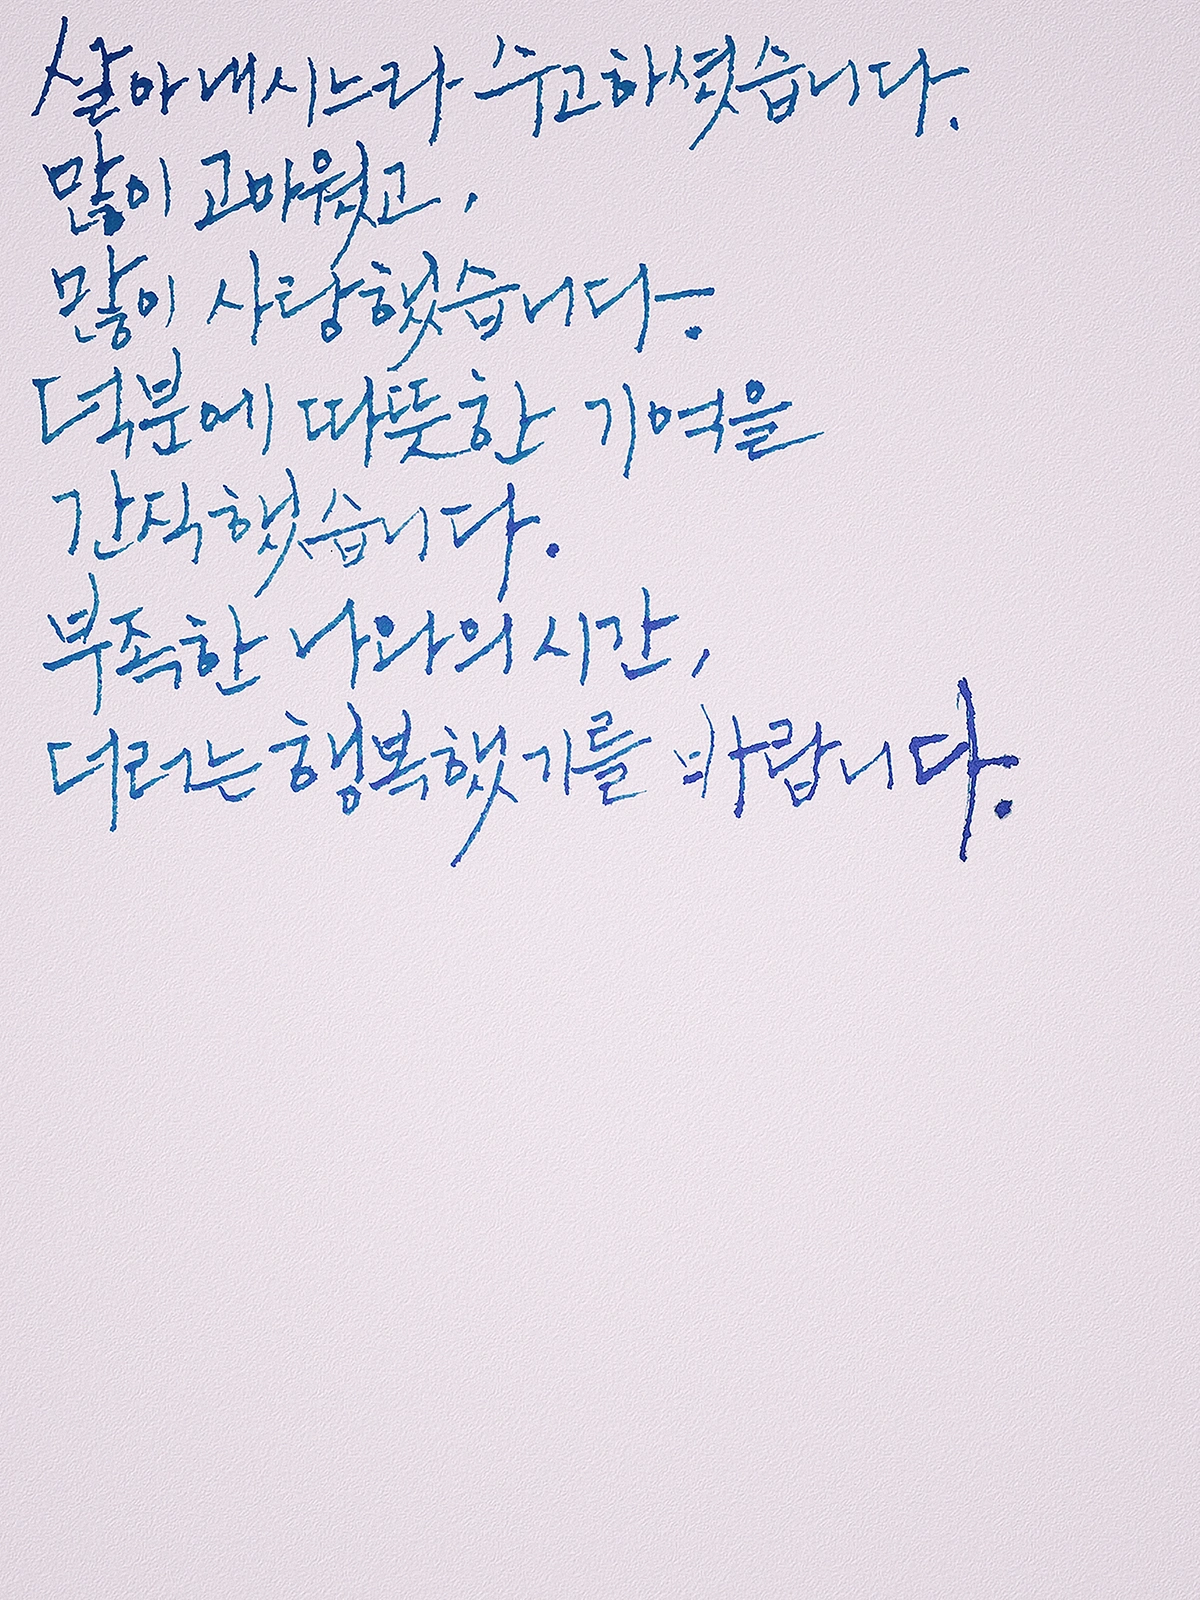 살아내시느라 수고하셨습니다.
많이 고마웠고,
많이 사랑했습니다.
덕분에 따뜻한 기억을
간직했습니다.
부족한 나와의 시간,
더러는 행복했기를 바랍니다.